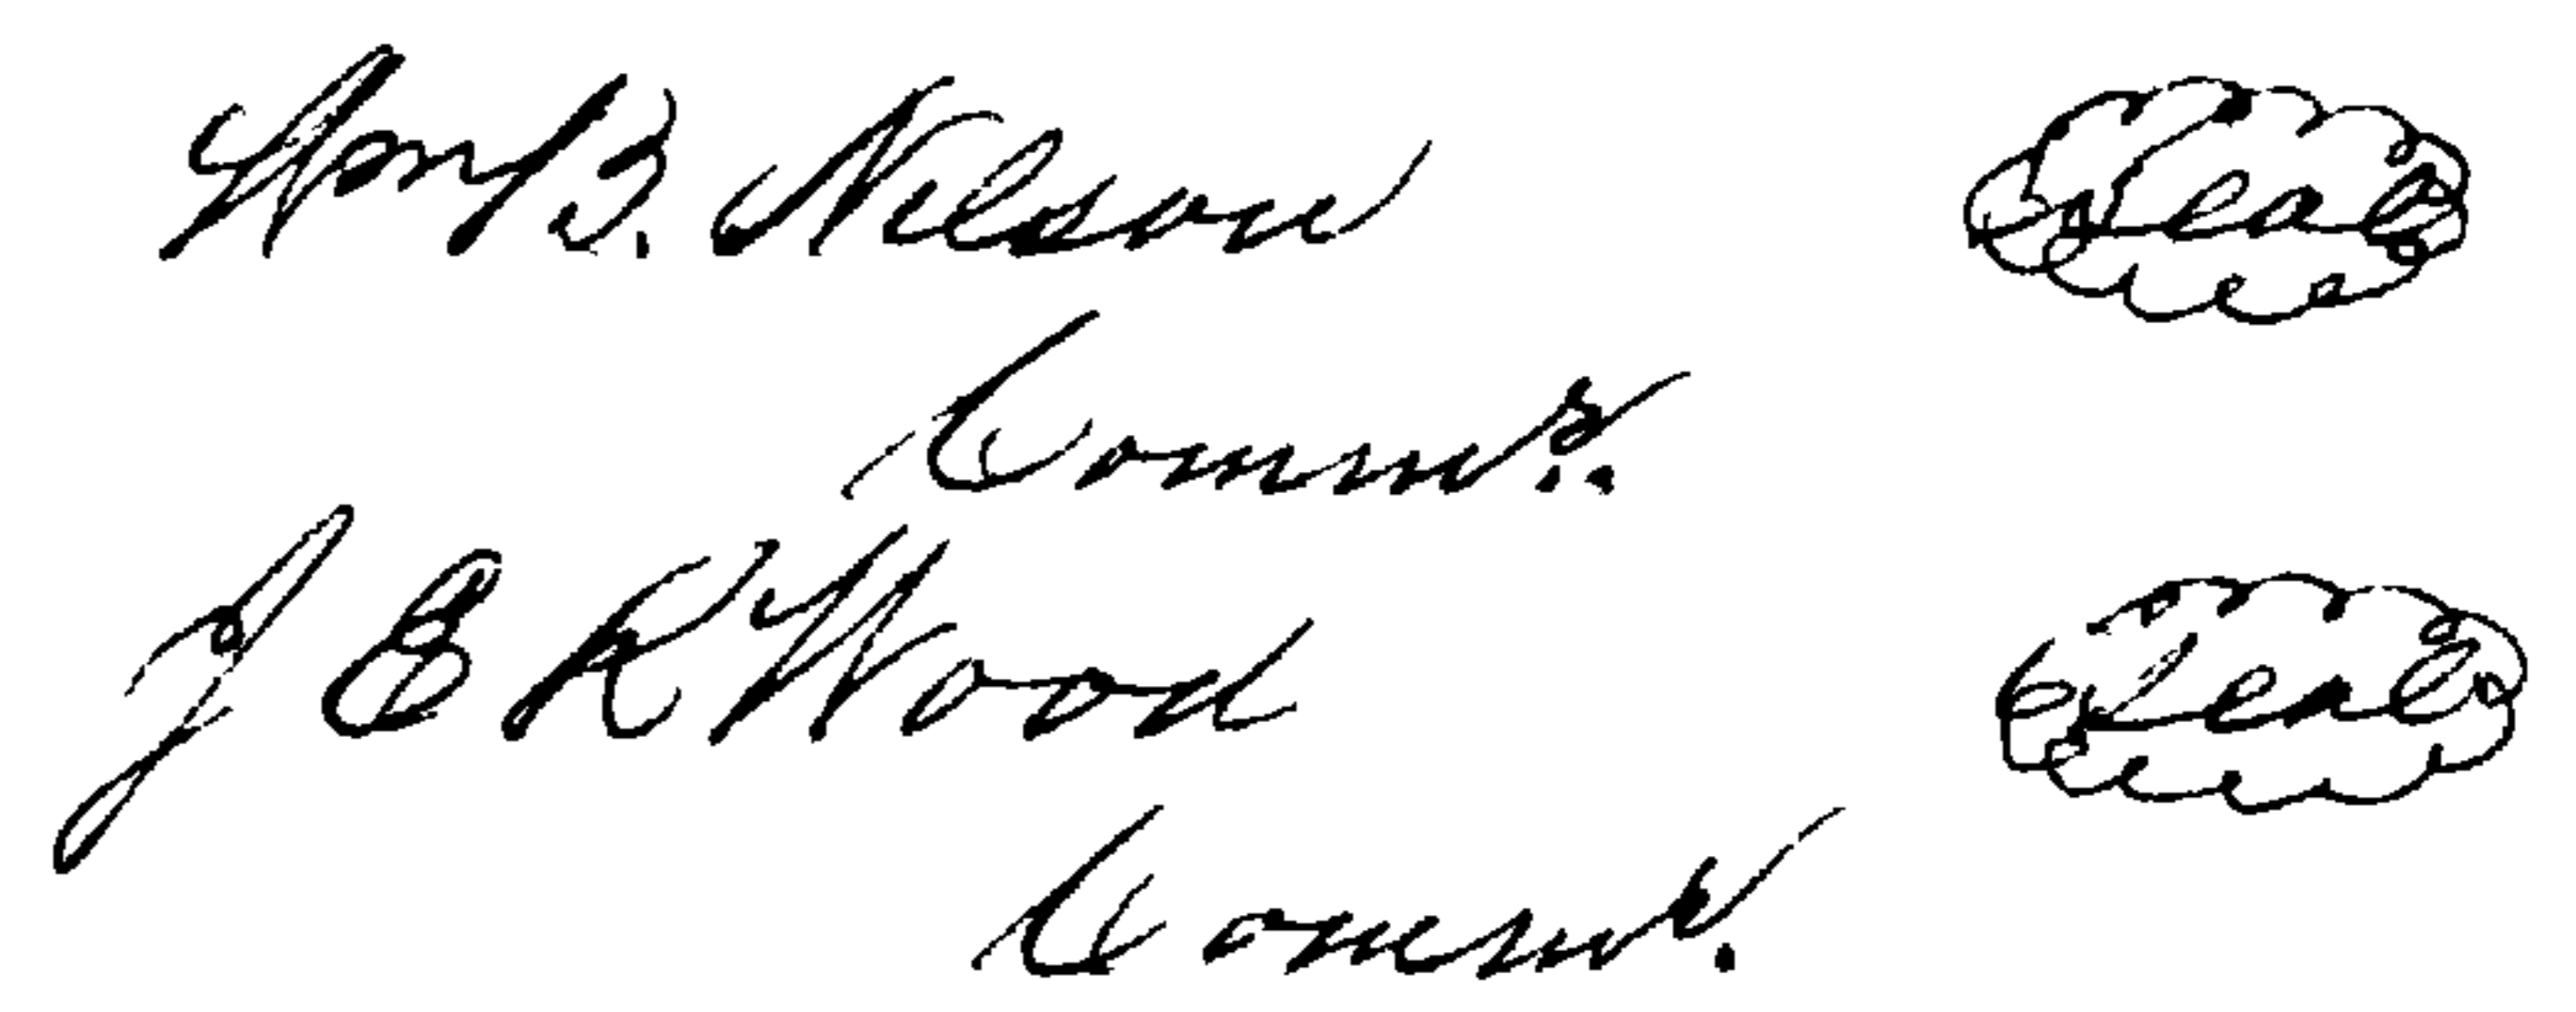 Nelson Seal
Comm.r.
J E K Wood Seal
Commr.